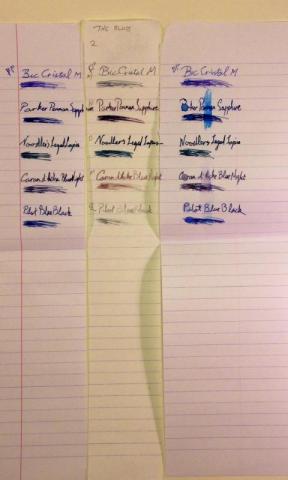 THE BLUES
2
Bic Cristal M
Parker Penman Sapphire
Noodlers Legal Lapis
Caran d'Ache Blue Night
Pilot Blue Black
Bic Cristal M
Parker Penman Sapphire
Noodlers Legal Lapis
Caran d'Ache Blue Night
Pilot Blue Black
Bic Cristal M
Parker Penman Sapphire
Noodlers Legal Lapis
Caran d'Ache Blue Night
Pilot Blue Black